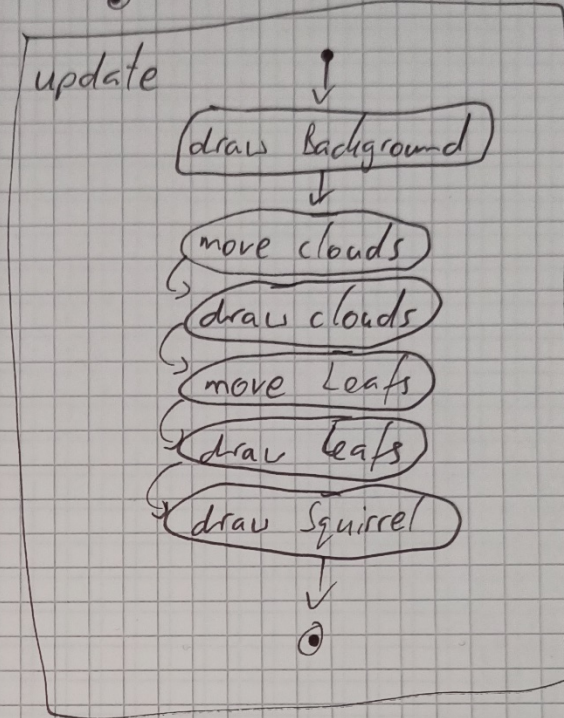 update
draw Background
move clouds
draw clouds
move Leafs
draw Leafs
draw Squirrel